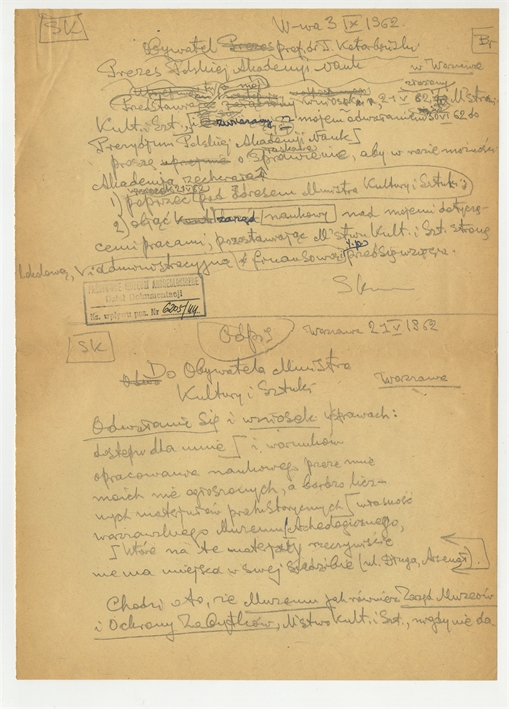 SK
W-wa 3 IX 1962
Obywatel prof. dr T. Kotarbiński
Prezes Polskiej Akademji Nauk
w Warszawie
złożony
wniosek z 21 V 62 M-stra
Kult. i Szt. i z mojem odwołaniem 30 VI 62 do
Prezydjum Polskiej Akademji Nauk
proszę uprzejmie o sprawienie, aby w razie możności
Akademia zechciała
1) poprzeć pod adresem Ministra Kultury i Sztuki
2) objąć zarząd naukowy nad mojemi dotyczą-
cemi pracami, pozostawiając M-stwu Kult. i Szt. stronę
lokalową, administracyjną i finansową przedsięwzięcia.
PAŃSTWOWE MUZEUM ARCHEOLOGICZNE
Dział Dokumentacji
Ks. wpływu poz. Nr 6205/44
SK
Odpis
Warszawa 21 V 1962
Do Obywatela Ministra
Kultury i Sztuki
Warszawa
Odwołanie się i wniosek w sprawach:
dostępu dla mnie i warunków
opracowania naukowego przeze mnie
moich nie ogłoszonych, a bardzo licz-
nych materjałów prehistorycznych własność
warszawskiego Muzeum Archeologicznego,
które na te materjały rzeczywiście
nie ma miejsca w swej siedzibie (ul. Długa, Arsenał).
Chodzi o to, że Muzeum jak również Zarząd Muzeów
i Ochrony Zabytków, M-stwo Kult. i Szt., nigdy nie da